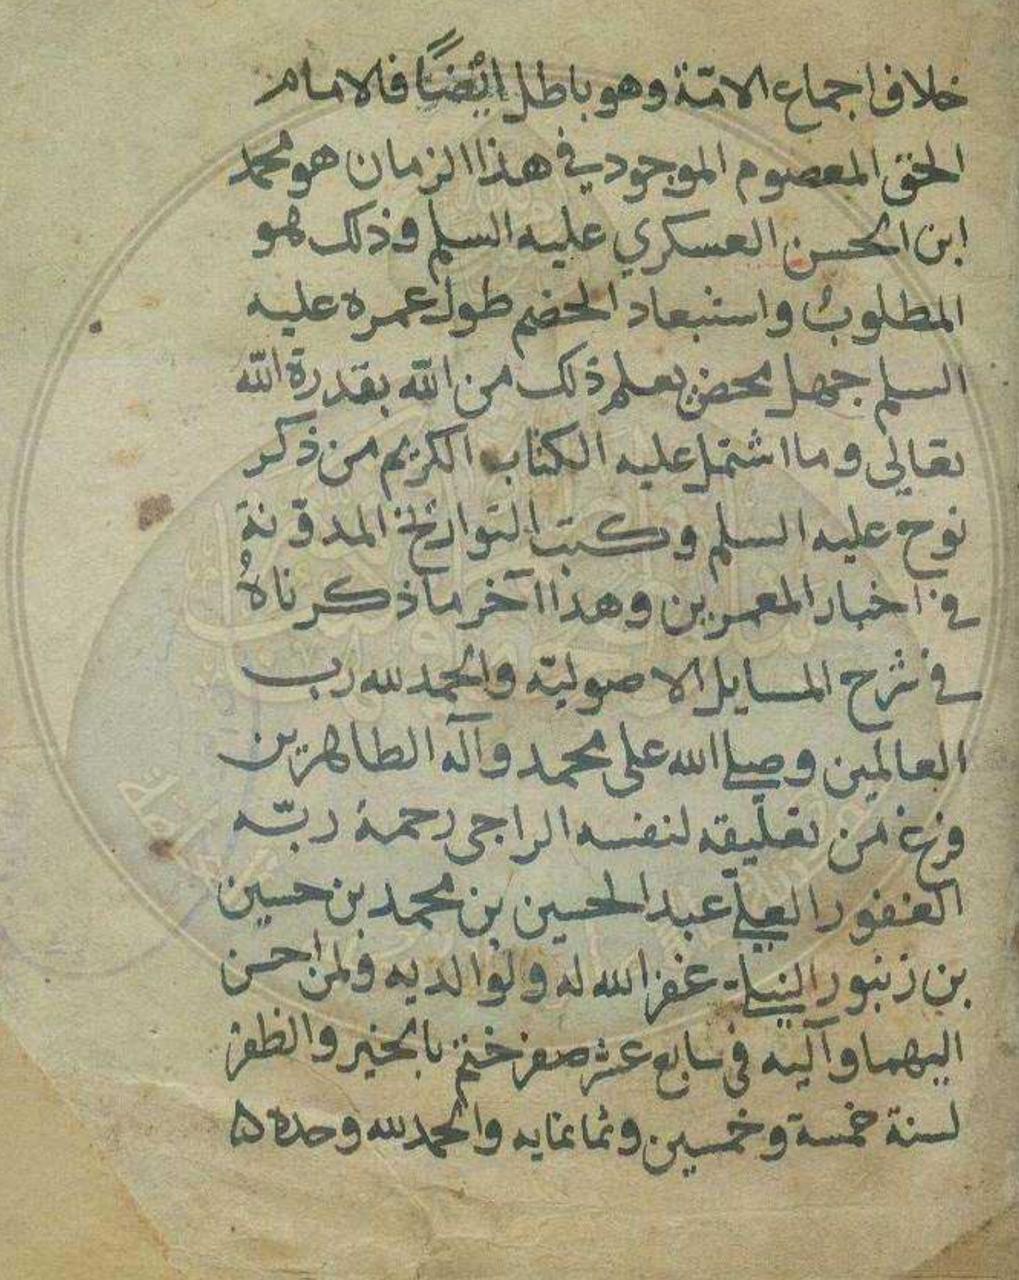 خلاف اجماع الامّة وهو باطل ايضًا فالامام
الحق المعصوم الموجود في هذا الزمان هو محمد
ابن الحسن العسكري عليه السلم وذلك هو
المطلوب واستبعاد الخصم طول عمره عليه
السلم جهل محض يعلم ذلك من الله بقدرة الله
تعالى وما اشتمل عليه الكتاب الكريم من ذكر
نوح عليه السلم وكتب التواريخ المدوّنة
في اخبار المعمرين وهذا آخر ما ذكرناهُ
في شرح المسايل الاصوليّة والحمد لله رب
العالمين وصلى الله على محمد وآله الطاهرين
فرغ من تعليقه لنفسه الراجى رحمة ربّه
الغفور العلي عبد الحسين بن محمد بن حسين
بن زنبور النيلي غفر الله له ولوالديه ولمن احسن
اليهما وآليه في سابع عشر صفر ختم بالخير والظفر
لسنة خمسة وخمسين وثمانمايه والحمد لله وحده